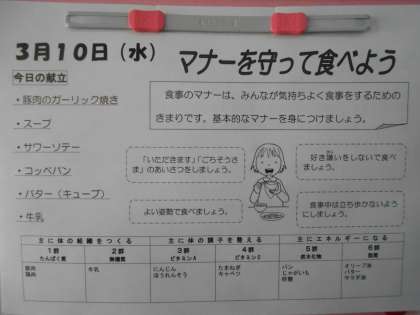 3月10日（水）
マナーを守って食べよう
今日の献立
・豚肉のガーリック焼き
・スープ
・サワーソテー
・コッペパン
・バター（キューブ）
・牛乳
食事のマナーは、みんなが気持ちよく食事をするための
きまりです。基本的なマナーを身につけましょう。
「いただきます」「ごちそうさ
ま」のあいさつをしましょう。
よい姿勢で食べましょう。
好き嫌いをしないで食べ
ましょう。
食事中は立ち歩かないよう
にしましょう。
主に体の組織をつくる
主に体の調子を整える
主にエネルギーになる
1群
たんぱく質
2群
無機質
3群
ビタミンA
4群
ビタミンC
5群
炭水化物
6群
脂質
豚肉
鶏肉
牛乳
にんじん
ほうれんそう
たまねぎ
キャベツ
パン
じゃがいも
砂糖
オリーブ油
バター
サラダ油